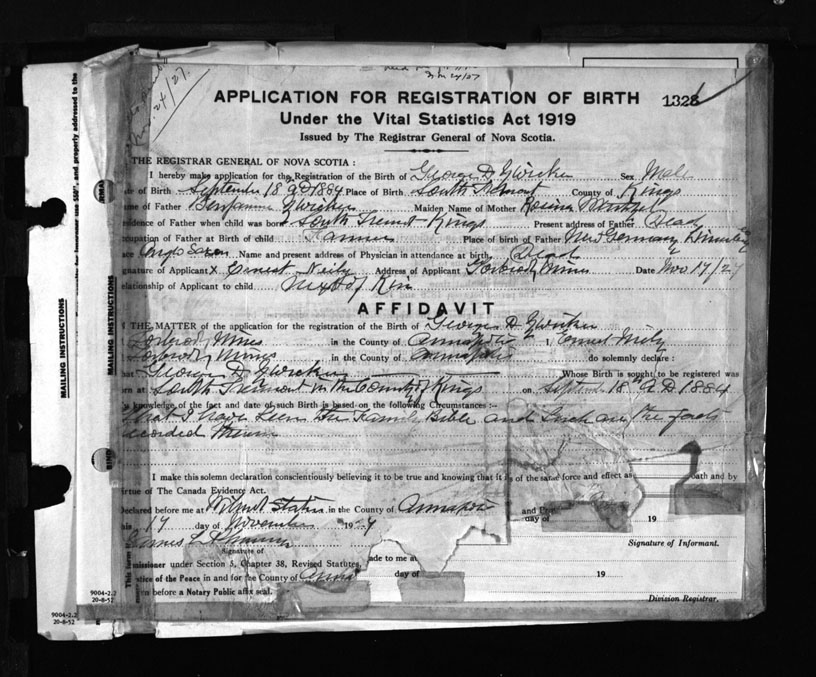 Nov. 24/27.
Nov 24/27
APPLICATION FOR REGISTRATION OF BIRTH 1328
Under the Vital Statistics Act 1919
Issued by The Registrar General of Nova Scotia.
THE REGISTRAR GENERAL OF NOVA SCOTIA :
I hereby make application for the Registration of the Birth of George D Zwicker Sex Male
of Birth September 18 AD 1884 Place of Birth South Tremont County of Kings
me of Father Benjamin Zwicker Maiden Name of Mother Rosina
residence of Father when child was born South Tremont Kings Present address of Father Dead
cupation of Father at Birth of child Farmer Place of birth of Father New Germany
Anglo Saxon Name and present address of Physician in attendance at birth Dead
gnature of Applicant x Ernest Neily Address of Applicant Torbrook Mines Date Nov 17/27
elationship of Applicant to child Next of Kin
AFFIDAVIT
THE MATTER of the application for the registration of the Birth of George D Zwicker
Torbrook Mines in the County of Annapolis I, Ernest Neily
Torbrook Mines in the County of Annapolis do solemnly declare :
hat George D Zwicker Whose Birth is sought to be registered was
rn at South Tremont in the County of Kings on Sept 18th AD 1884
knowledge of the fact and date of such Birth is based on the following Circumstances :-
that I have seen the Family Bible and such are the facts
recorded therein
I make this solemn declaration conscientiously believing it to be true and knowing that it is of the same force and effect as oath and by
irtue of The Canada Evidence Act.
Declared before me at Wilmot Station in the County of Annapolis and
his 17 day of November 1927 day of 19
James
Signature of Signature of Informant.
missioner under Section 5, Chapter 38, Revised Statutes, ade to me at
stice of the Peace in and for the County of Anna day of 19
rn before a Notary Public affix seal. Division Registrar.
MAILING INSTRUCTIONS
MAILING INSTRUCTIONS
and properly addressed to the
This form
9004-2.2
20-8-52
9004-2.2
20-8-52